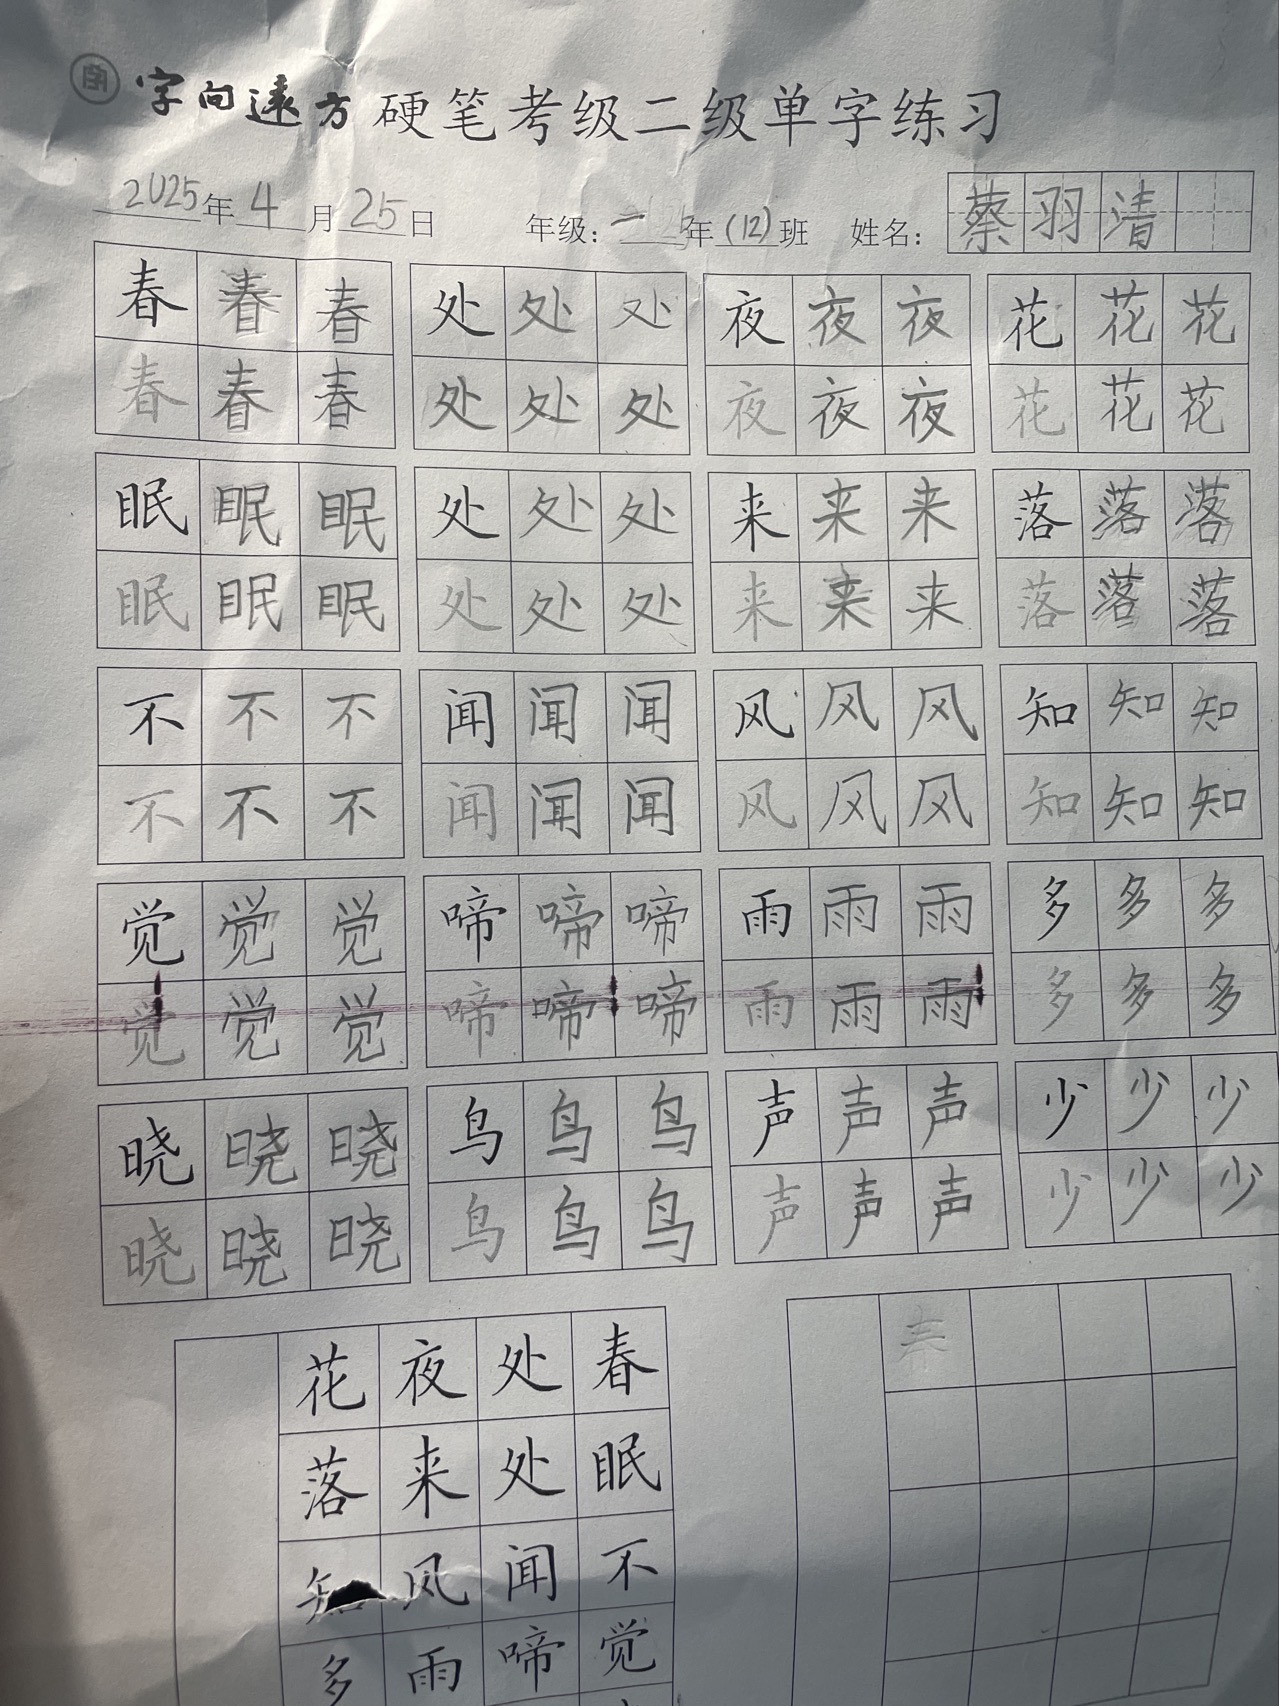 字向远方 硬笔考级二级单字练习
2025年4月25日 年级：一年(12)班 姓名：蔡羽清
春春春 处处处 夜夜夜 花花花
春春春 处处处 夜夜夜 花花花
眠眠眠 处处处 来来来 落落落
眠眠眠 处处处 来来来 落落落
不不不 闻闻闻 风风风 知知知
不不不 闻闻闻 风风风 知知知
觉觉觉 啼啼啼 雨雨雨 多多多
觉觉觉 啼啼啼 雨雨雨 多多多
晓晓晓 鸟鸟鸟 声声声 少少少
晓晓晓 鸟鸟鸟 声声声 少少少
花夜处春 春
落来处眠
知风闻不
多雨啼觉